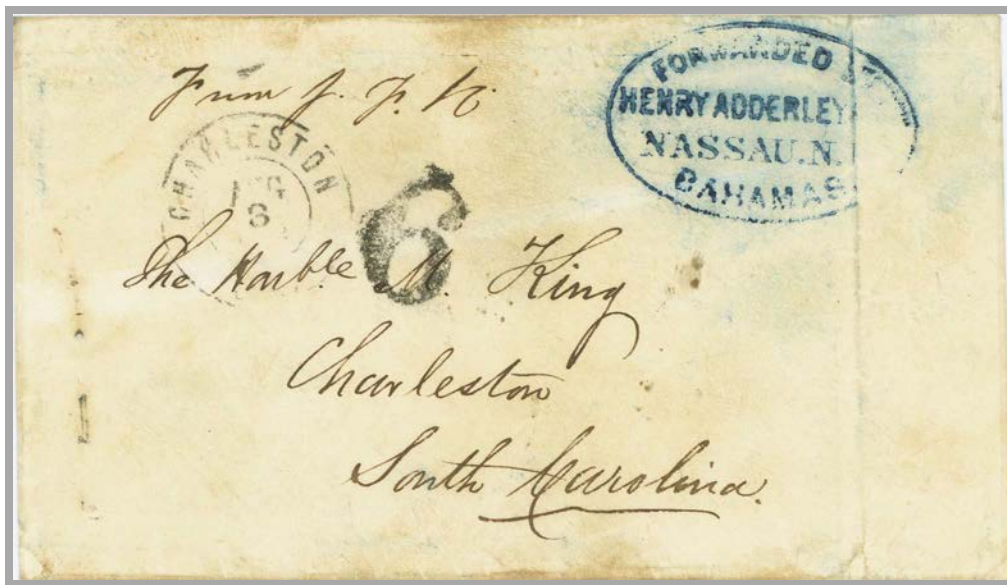 From J. F. K.
FORWARDED
HENRY ADDERLEY
NASSAU. N.
BAHAMAS
CHARLESTON
6
6
The Honble M. King
Charleston
South Carolina.